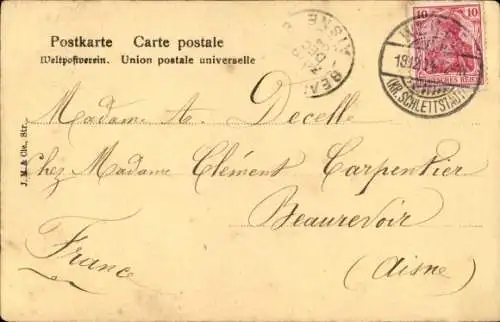 Postkarte Carte postale
Weltpostverein. Union postale universelle
10 10
DEUTSCHES REICH
(KR. SCHLETTSTADT)
AISNE
J. M. & Cie., Str.
Madame A. Decelle
Chez Madame Clément Carpentier
Beaurevoir
(Aisne)
France